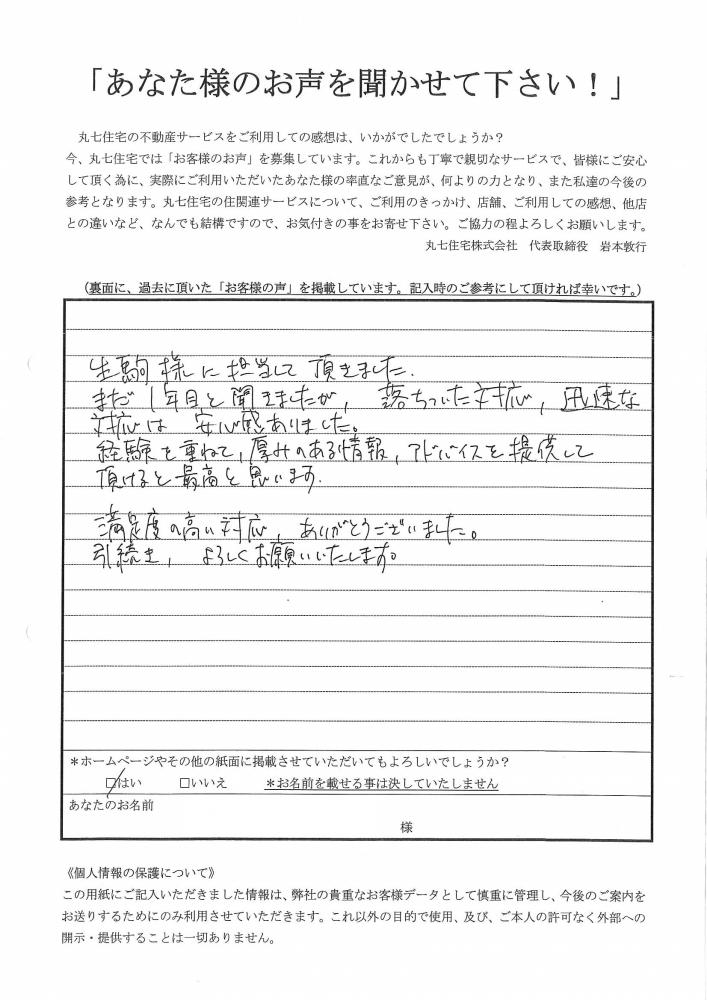 「あなた様のお声を聞かせて下さい！」
丸七住宅の不動産サービスをご利用しての感想は、いかがでしたでしょうか？
今、丸七住宅では「お客様のお声」を募集しています。これからも丁寧で親切なサービスで、皆様にご安心
して頂く為に、実際にご利用いただいたあなた様の率直なご意見が、何よりの力となり、また私達の今後の
参考となります。丸七住宅の住関連サービスについて、ご利用のきっかけ、店舗、ご利用しての感想、他店
との違いなど、なんでも結構ですので、お気付きの事をお寄せ下さい。ご協力の程よろしくお願いします。
丸七住宅株式会社　代表取締役　岩本敦行
（裏面に、過去に頂いた「お客様の声」を掲載しています。記入時のご参考にして頂ければ幸いです。）
生駒様に担当して頂きました.
まだ1年目と聞きましたが, 落ちついた対応, 迅速な
対応は 安心感ありました。
経験を重ねて, 厚みのある情報, アドバイスを提供して
頂けると最高と思います.
満足度の高い対応, ありがとうございました。
引続き, よろしくお願いいたします。
＊ホームページやその他の紙面に掲載させていただいてもよろしいでしょうか？
□はい　□いいえ　＊お名前を載せる事は決していたしません
あなたのお名前
様
《個人情報の保護について》
この用紙にご記入いただきました情報は、弊社の貴重なお客様データとして慎重に管理し、今後のご案内を
お送りするためにのみ利用させていただきます。これ以外の目的で使用、及び、ご本人の許可なく外部への
開示・提供することは一切ありません。